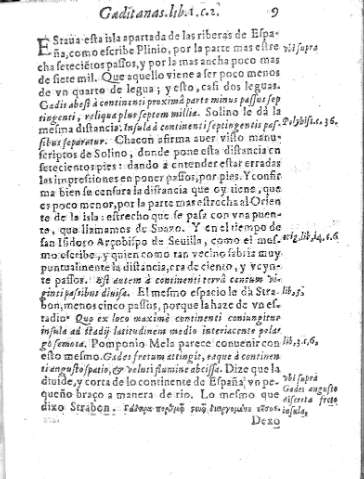 Gaditanas.lib.1.c.2. 9
EStaua esta isla apartada de las riberas de Espa-
ña, como escribe Plinio, por la parte mas estre
cha seteciētos passos, y por la mas ancha poco mas
de siete mil. Que aquello viene a ser poco menos
de vn quarto de legua; y esto, casi dos leguas.
Gadis abest à continenti proximà parte minus passus sep
tingenti, reliqua plus septem millia. Solino le dà la
mesma distancia. Insula à continenti septingentis pas-
sibus separatur. Chacon afirma auer visto manu-
scriptos de Solino, donde pone esta distancia en
setecientos pies: dando à entender estar erradas
las impressiones en poner passos, por pies. Y confir
ma bien se censura la distancia que oy tiene, que
es poco menor, por la parte mas estrecha al Orien
te de la isla: estrecho que se passa con vna puen-
te, que llamamos de Suazo. Y en el tiempo de
san Isidoro Arçobispo de Seuilla, como el mes-
mo escribe, y quien como tan vecino sabria muy
puntualmente la distancia, era de ciento, y veyn-
te passos. Est autem à continenti terra centum vi-
ginti passibus diuisa. El mesmo espacio le dà Stra-
bon, menos cinco passos, porque la haze de vn es-
tadio. Quo ex loco maximè continenti coniungitur
insula ad stadij latitudinem medio interiacente pelar
go semota. Pomponio Mela parece conuenir con
esto mesmo. Gades fretum attingit, eaque à continen
ti angusto spatio, & veluti flumine abscissa. Dize que la
diuide, y corta de lo continente de España vn pe-
queño braço a manera de rio. Lo mesmo que
dixo Strabon.
Dexo
vbi supra
Polyhist. c. 36.
orig. lib. 14. c. 6
lib. 3.
lib. 3. c. 6.
vbi suprà
Gades angusto
discreta freto
insula,